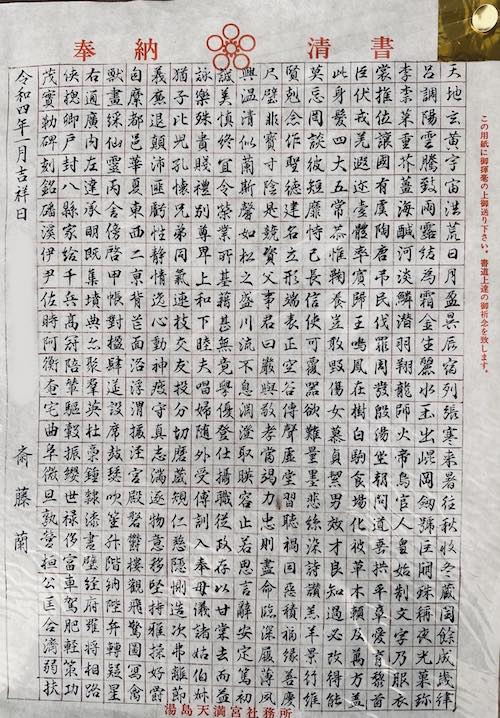 奉納
清書
天地玄黄宇宙洪荒日月盈昃辰宿列張寒来暑往秋收冬蔵閏餘成歳律
呂調陽雲騰致雨露結為霜金生麗水玉出崐岡劔號巨闕珠稱夜光菓珍
李柰菜重芥薑海鹹河淡鱗潜羽翔龍師火帝鳥官人皇始制文字乃服衣
裳推位讓國有虞陶唐弔民伐罪周發殷湯坐朝問道垂拱平章愛育黎首
臣伏戎羌遐迩壹體率賓歸王鳴鳳在樹白駒食場化被草木頼及万方盖
此身髪四大五常恭惟鞠養豈敢毀傷女慕貞絜男效才良知過必改得能
莫忘罔談彼短靡恃己長信使可覆器欲難量墨悲絲染詩讃羔羊景行維
賢剋念作聖徳建名立形端表正空谷傳聲虚堂習聽禍因惡積福縁善慶
尺璧非寶寸陰是競資父事君曰嚴與敬孝當竭力忠則盡命臨深履薄夙
興温凊似蘭斯馨如松之盛川流不息淵澄取暎容止若思言辭安定篤初
誠美慎終宜令榮業所基籍甚無竟學優登仕攝職從政存以甘棠去而益
詠樂殊貴賤禮別尊卑上和下睦夫唱婦随外受傅訓入奉母儀諸姑伯叔
猶子比兒孔懐兄弟同氣連枝交友投分切磨箴規仁慈隱惻造次弗離節
義廉退顛沛匪虧性静情逸心動神疲守真志滿逐物意移堅持雅操好爵
自縻都邑華夏東西二京背芒面洛浮渭據涇宮殿盤欝樓觀飛驚圖寫禽
獣畫綵仙靈丙舎傍啓甲帳對楹肆筵設席皷瑟吹笙升階納陛弁轉疑星
右通廣内左達承明既集墳典亦聚羣英杜稾鍾隷漆書壁経府羅将相路
侠槐卿戸封八縣家給千兵高冠陪輦驅轂振纓世禄侈富車駕肥軽策功
茂實勒碑刻銘磻溪伊尹佐時阿衡奄宅曲阜微旦孰營桓公匡合濟弱扶
令和四年一月吉祥日
斎藤蘭
この用紙に御揮毫の上御送り下さい。書道上達の御祈念を致します。
湯島天満宮社務所